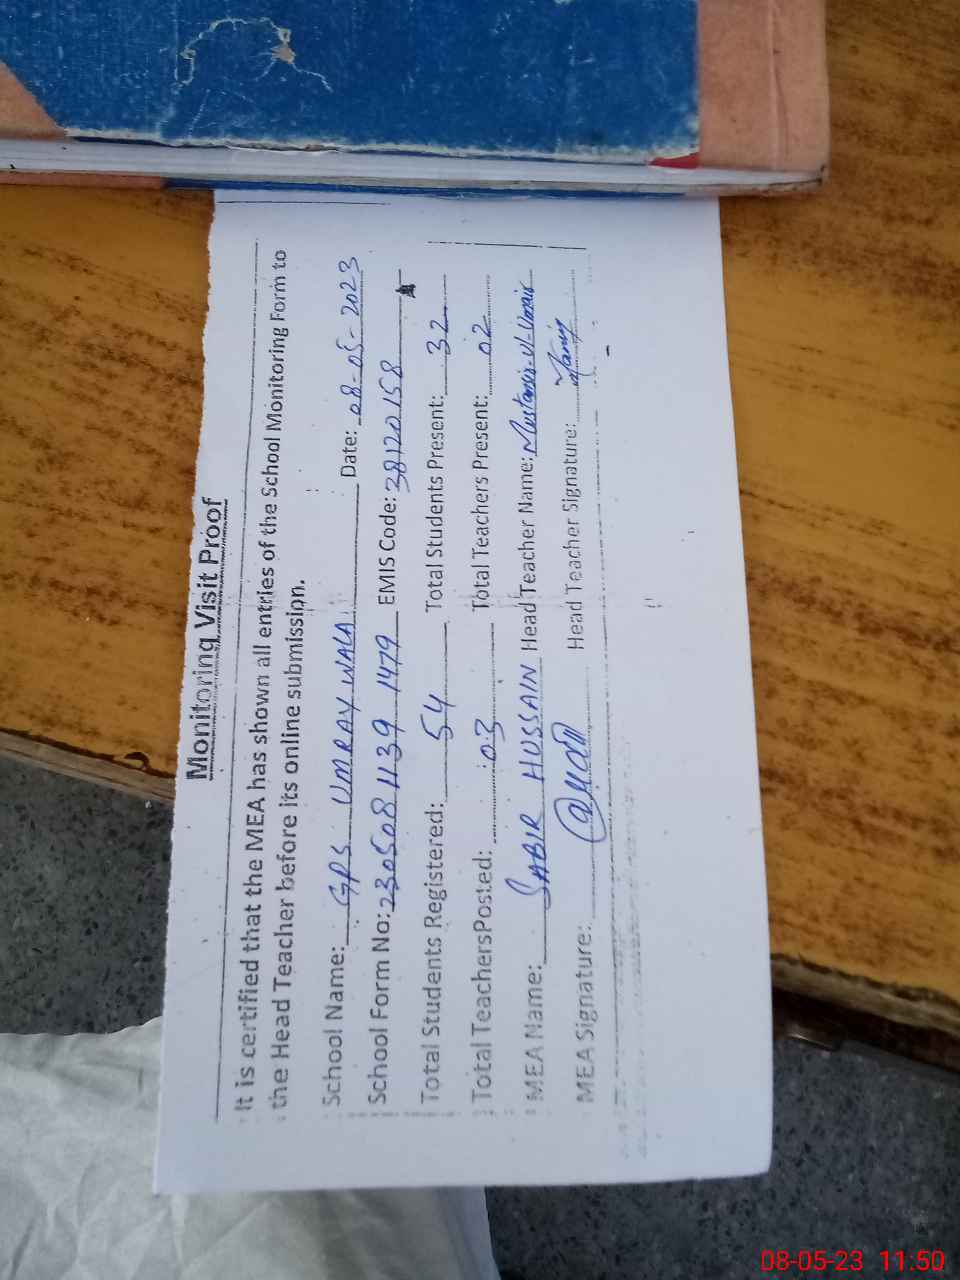 Monitoring Visit Proof
It is certified that the MEA has shown all entries of the School Monitoring Form to
the Head Teacher before its online submission.
School Name: GPS UMRAY WALA Date: 08-05-2023
School Form No: 230508 1139 1479 EMIS Code: 38120158
Total Students Registered: 54 Total Students Present: 32
Total TeachersPosted: 03 Total Teachers Present: 02
MEA Name: SABIR HUSSAIN Head Teacher Name:
MEA Signature: Head Teacher Signature:
08-05-23 11:50